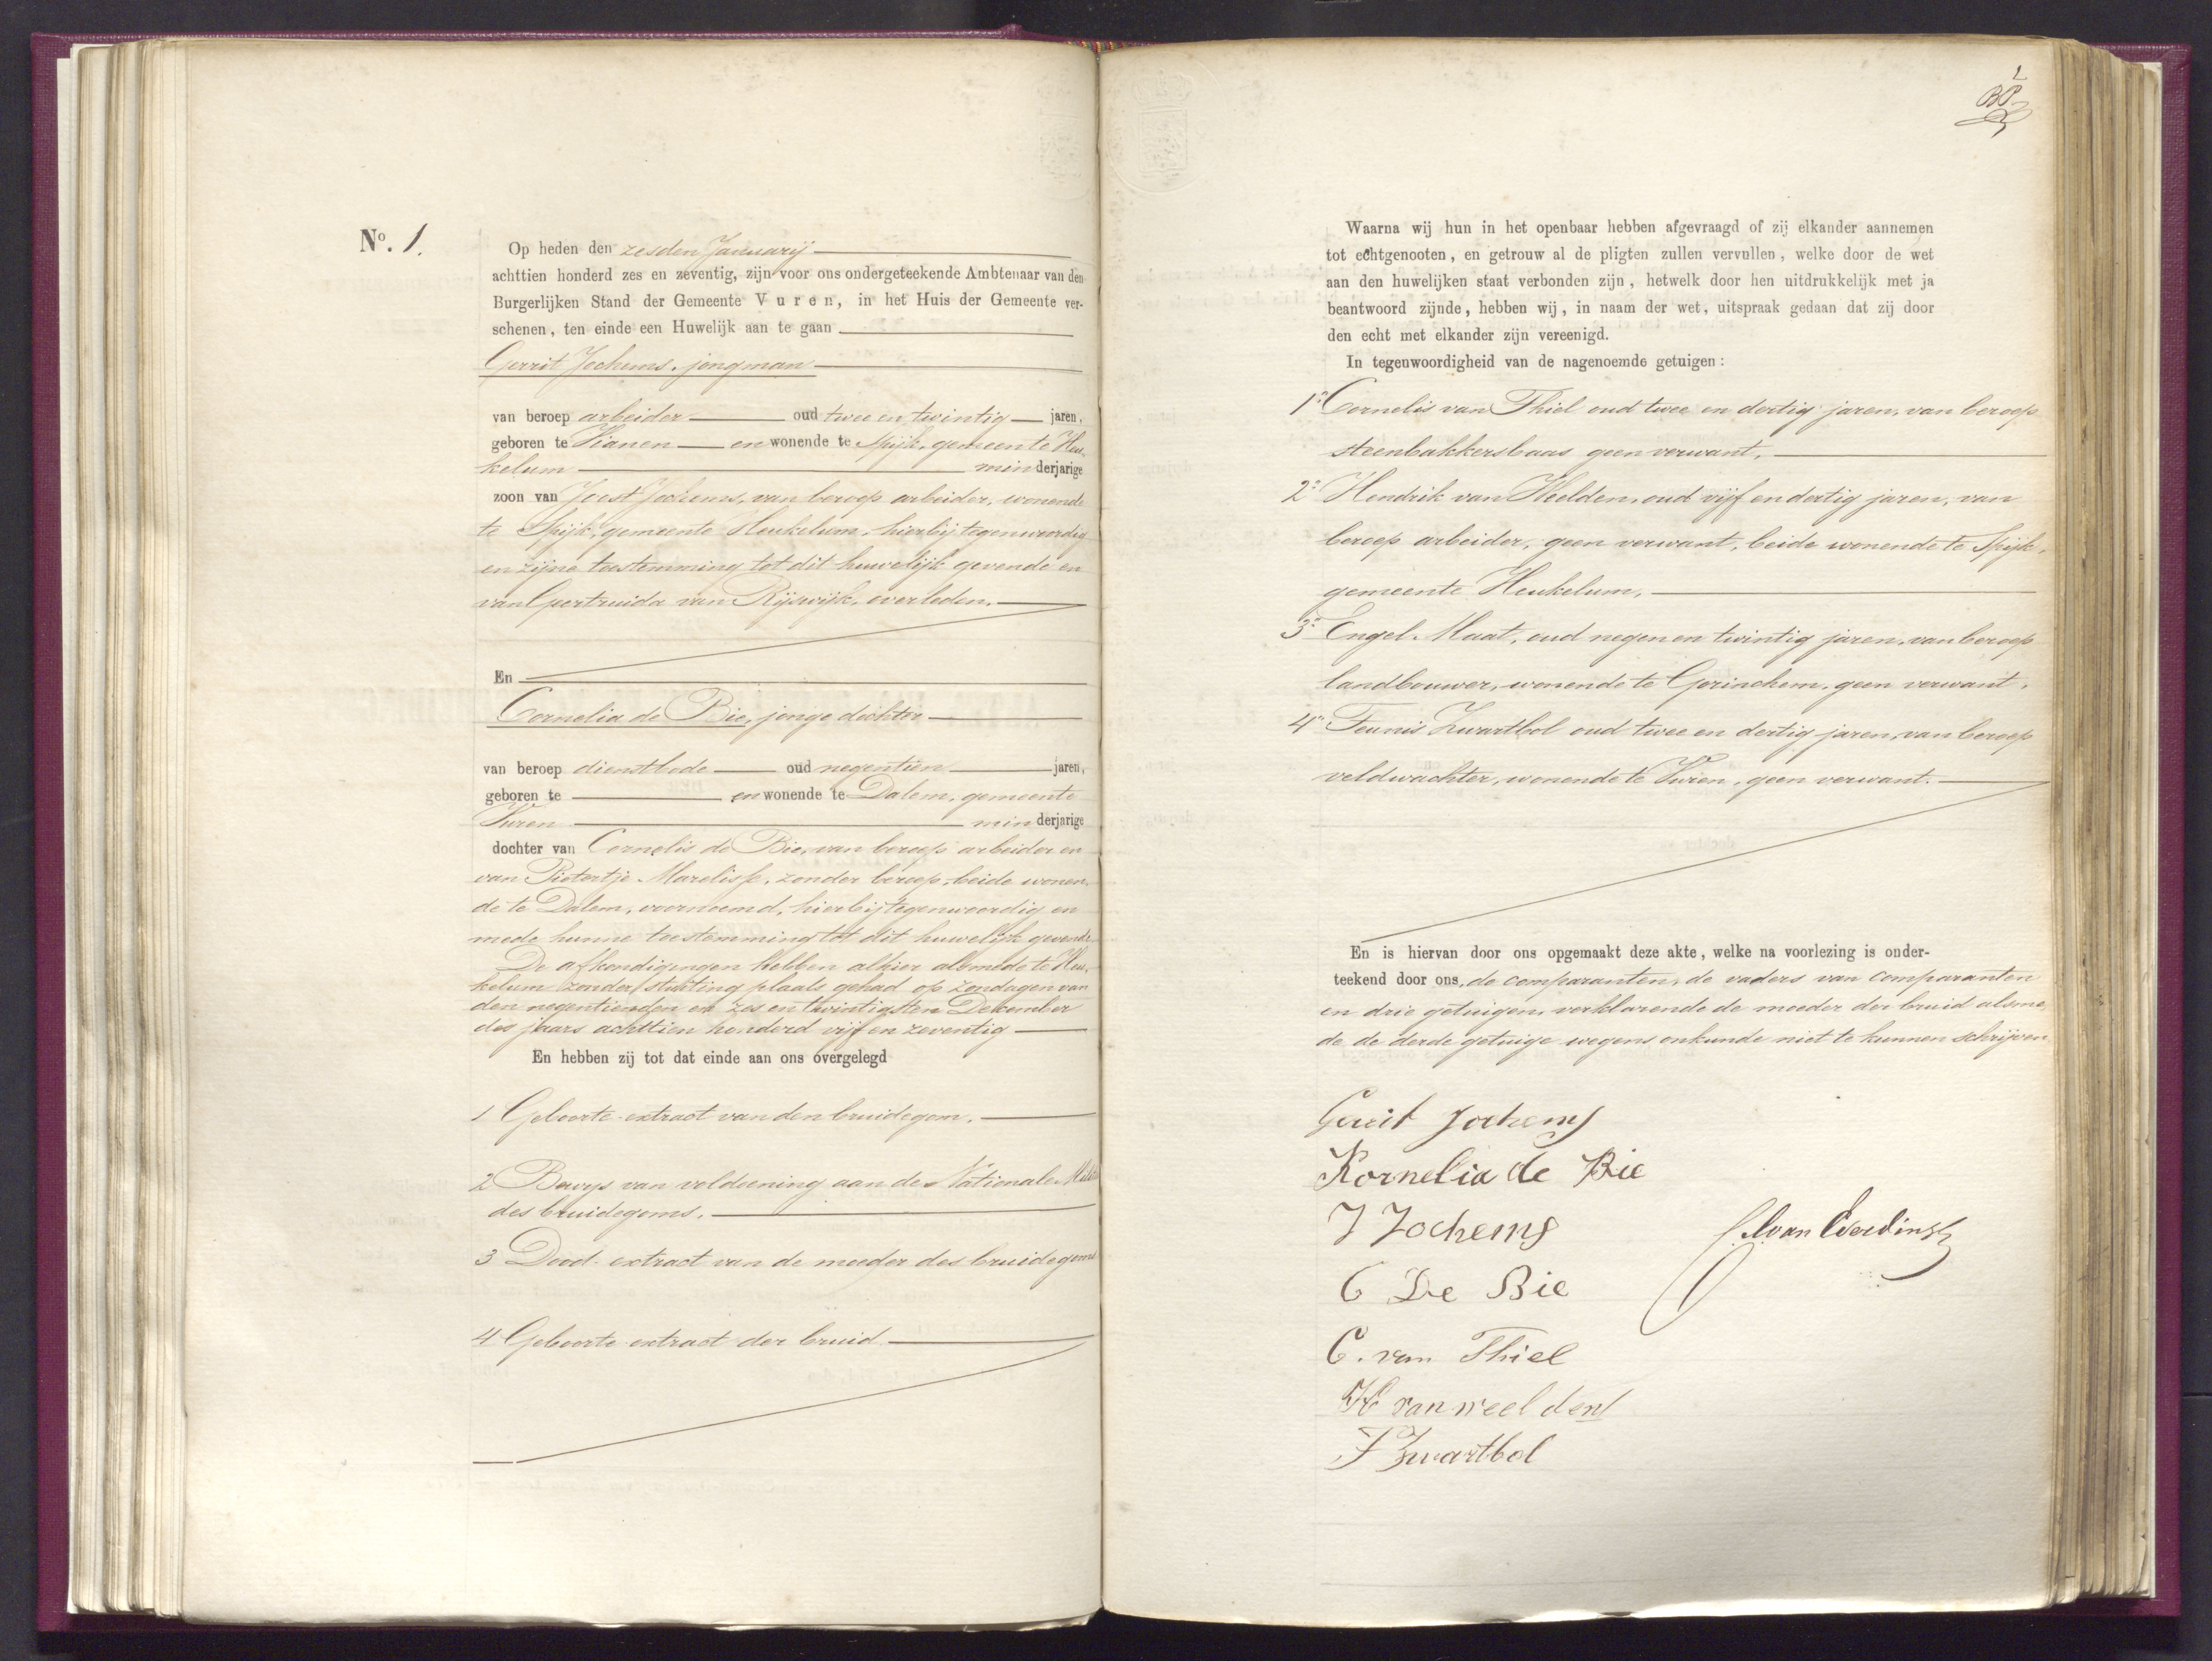 No. 1.
Op heden den zesden Januarij
achttien honderd zes en zeventig, zijn voor ons ondergeteekende Ambtenaar van den
Burgerlijken Stand der Gemeente Vuren, in het Huis der Gemeente ver-
schenen, ten einde een Huwelijk aan te gaan
Gerrit Jochems, jongman
van beroep arbeider oud twee en twintig jaren,
geboren te Vianen en wonende te Spijk, gemeente Heu-
kelum minderjarige
zoon van Joost Jochems, van beroep arbeider, wonende
te Spijk, gemeente Heukelum, hierbij tegenwoordig
en zijne toestemming tot dit huwelijk gevende en
van Geertruida van Rijswijk, overleden.
En
Cornelia de Bie, jonge dochter
van beroep dienstbode oud negentien jaren,
geboren te en wonende te Dalem, gemeente
Vuren minderjarige
dochter van Cornelis de Bie, van beroep arbeider en
van Pietertje Marelisse, zonder beroep, beide wonen-
de te Dalem, voornoemd, hierbij tegenwoordig en
mede hunne toestemming tot dit huwelijk gevende
De afkondigingen hebben alhier alsmede te Heu-
kelum zonder stuiting plaats gehad op Zondagen van
den negentienden en zes en twintigsten December
des jaars achttien honderd vijf en zeventig
En hebben zij tot dat einde aan ons overgelegd
1 Geboorte-extract van den bruidegom.
2 Bewijs van voldoening aan de Nationale Militie
des bruidegoms.
3 Dood-extract van de moeder des bruidegoms
4 Geboorte-extract der bruid
1
BP
Waarna wij hun in het openbaar hebben afgevraagd of zij elkander aannemen
tot echtgenooten, en getrouw al de pligten zullen vervullen, welke door de wet
aan den huwelijken staat verbonden zijn, hetwelk door hen uitdrukkelijk met ja
beantwoord zijnde, hebben wij, in naam der wet, uitspraak gedaan dat zij door
den echt met elkander zijn vereenigd.
In tegenwoordigheid van de nagenoemde getuigen:
1o Cornelis van Thiel oud twee en dertig jaren, van beroep
steenbakkersbaas geen verwant,
2o Hendrik van Weelden, oud vijf en dertig jaren, van
beroep arbeider, geen verwant, beide wonende te Spijk,
gemeente Heukelum,
3o Engel Maat, oud negen en twintig jaren, van beroep
landbouwer, wonende te Gorinchem, geen verwant,
4o Teunis Zwartbol oud twee en dertig jaren, van beroep
veldwachter, wonende te Vuren, geen verwant.
En is hiervan door ons opgemaakt deze akte, welke na voorlezing is onder-
teekend door ons, de comparanten, de vaders van comparanten
en drie getuigen, verklarende de moeder der bruid alsme-
de de derde getuige wegens onkunde niet te kunnen schrijven
Gerrit Jochems
Kornelia de Bie
J Jochems
C De Bie
van Everdingen
C. van Thiel
H van weelden
T Zwartbol